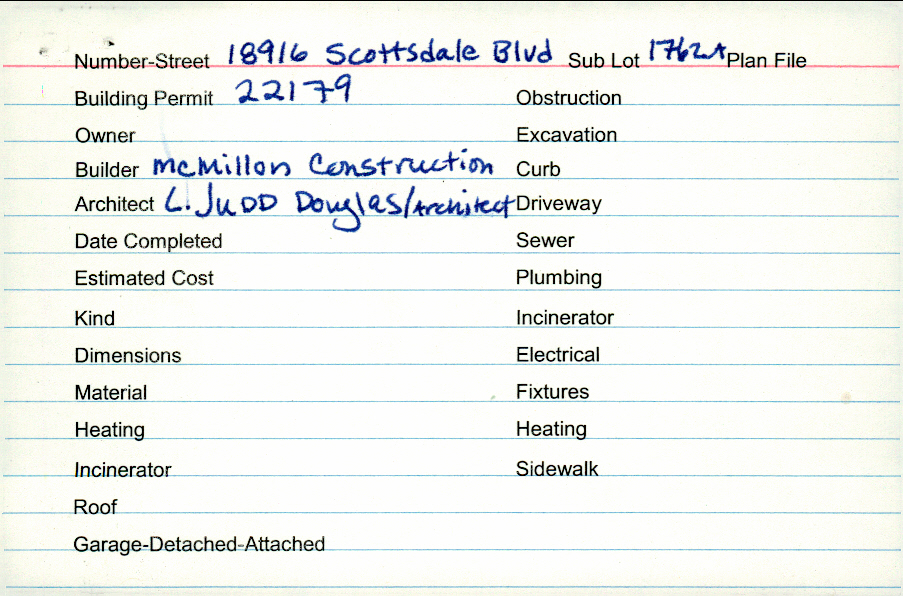 Number-Street 18916 Scottsdale Blvd Sub Lot 1762A Plan File
Building Permit 22179 Obstruction
Owner Excavation
Builder McMillon Construction Curb
Architect L. JuDD Douglas/Architect Driveway
Date Completed Sewer
Estimated Cost Plumbing
Kind Incinerator
Dimensions Electrical
Material Fixtures
Heating Heating
Incinerator Sidewalk
Roof
Garage-Detached-Attached